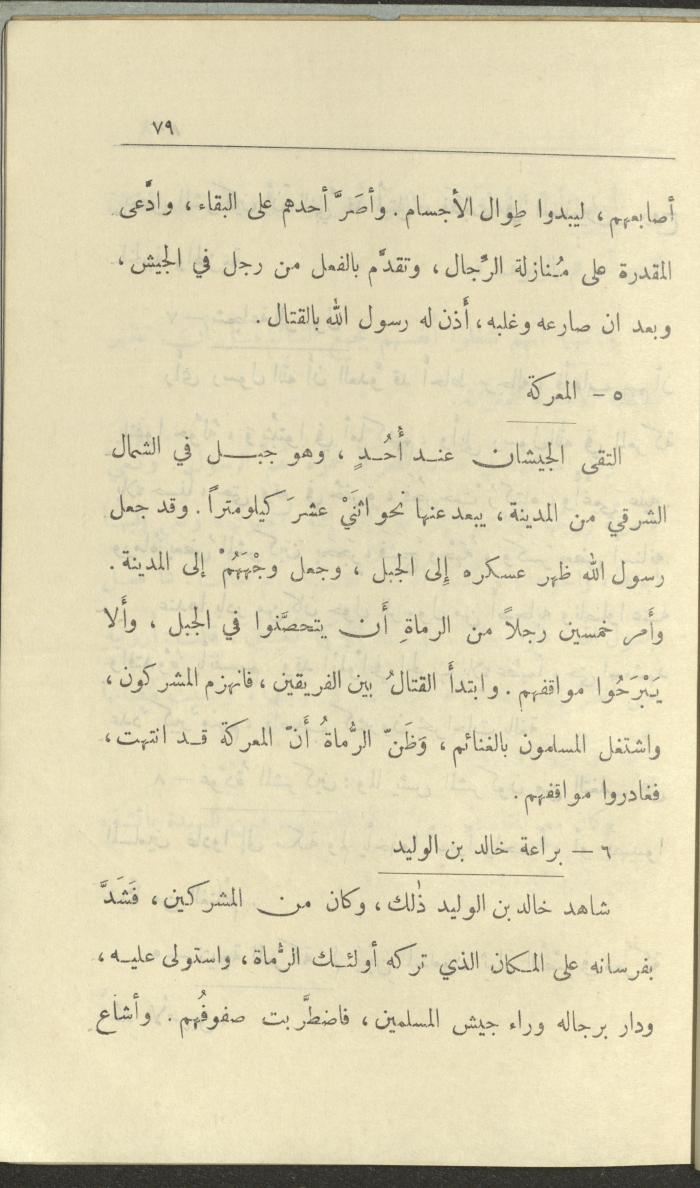 ٧٩
أصابعهم ، ليبدوا طِوال الأجسام . وأصَرَّ أحدهم على البقاء ، وادَّعى
المقدرة على مُنازلة الرِّجال ، وتقدَّم بالفعل من رجل في الجيش ،
وبعد ان صارعه وغلبه ، أَذن له رسول الله بالقتال .
٥ – المعركة
التقى الجيشان عند أُحُدٍ ، وهو جبل في الشمال
الشرقي من المدينة ، يبعد عنها نحو اثنَيْ عشرَ كيلومتراً . وقد جعل
رسول الله ظهر عسكره إِلى الجبل ، وجعل وجْهَهُمْ إلى المدينة .
وأَمر خمسين رجلاً من الرماةِ أَن يتحصَّنوا في الجبل ، وأَلا
يَبْرَحُوا مواقفهم . وابتدأَ القتالُ بين الفريقين ، فانهزم المشركون ،
واشتغل المسلمون بالغنائم ، وَظَنّ الرُّماةُ أَنّ المعركة قد انتهت ،
فغادروا مواقفهم .
٦ – براعة خالد بن الوليد
شاهد خالد بن الوليد ذٰلك ، وكان من المشركين ، فَشَدَّ
بفرسانه على المكان الذي تركه أولئك الرُّماة ، واستولى عليه ،
ودار برجاله وراء جيش المسلمين ، فاضطَّربت صفوفُهم . وأشاع